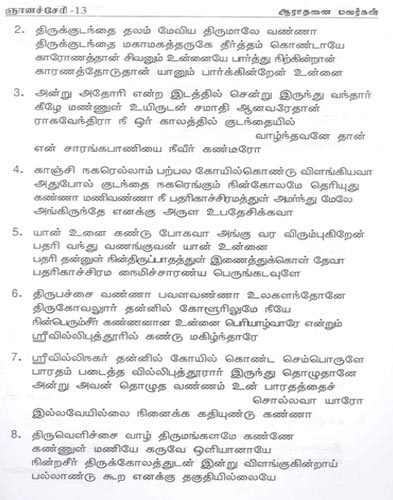 ஞானச்சேரி -13
ஆராதனை மலர்கள்
2. திருக்குடந்தை தலம் மேவிய திருமாலே வண்ணா
திருக்குடந்தை மகாமகத்தருகே தீர்த்தம் கொண்டாயே
காரோணத்தான் சிவனும் உன்னையே பார்த்து நிற்கின்றான்
காரணத்தோடுதான் யானும் பார்க்கின்றேன் உன்னை
3. அன்று அதோரி என்ற இடத்தில் சென்று இருந்து வந்தார்
கீழே மண்ணுள் உயிருடன் சமாதி ஆனவரேதான்
ராகவேந்திரா நீ ஒர் காலத்தில் குடந்தையில்
வாழ்ந்தவனே தான்
என் சாரங்கபாணியை நீவீர் கண்டீரோ
4. காஞ்சி நகரெல்லாம் பற்பல கோயில்கொண்டு விளங்கியவா
அதுபோல் குடந்தை நகரெங்கும் நின்கோலமே தெரியுது
கண்ணா மணிவண்ணா நீ பதரிகாச்சிரமத்துள் அமர்ந்து மேலே
அங்கிருந்தே எனக்கு அருள உபதேசிக்கவா
5. யான் உனை கண்டு போகவா அங்கு வர விரும்புகிறேன்
பதரி வந்து வணங்குவன் யான் உன்னை
பதரி தன்னுள் நின்திருப்பாதத்துள் இணைத்துக்கொள் தேவா
பதரிகாச்சிரம நைமிச்சாரண்ய பெருங்கடவுளே
6. திருபச்சை வண்ணா பவளவண்ணா உலகளந்தோனே
திருகோவலூர் தன்னில் கோளூரிலுமே நீயே
நின்பெரும்சீர் கண்ணனான உன்னை பெரியாழ்வாரே என்றும்
ஸ்ரீவில்லிபுத்தூரில் கண்டு மகிழ்ந்தாரே
7. ஸ்ரீவில்லிநகர் தன்னில் கோயில் கொண்ட செம்பொருளே
பாரதம் படைத்த வில்லிபுத்தூரார் இருந்து தொழுதானே
அன்று அவன் தொழுத வண்ணம் உன் பாரதத்தைச்
சொல்லவா யாரோ
இல்லவேயில்லை நினைக்க கதியுண்டு கண்ணா
8. திருவெளிச்சை வாழ் திருமங்களமே கண்ணே
கண்ணுள் மணியே கருவே ஒளியானாயே
நின்றசீர் திருக்கோலத்துடன் இன்று விளங்குகின்றாய்
பல்லாண்டு கூற எனக்கு தகுதியில்லையே